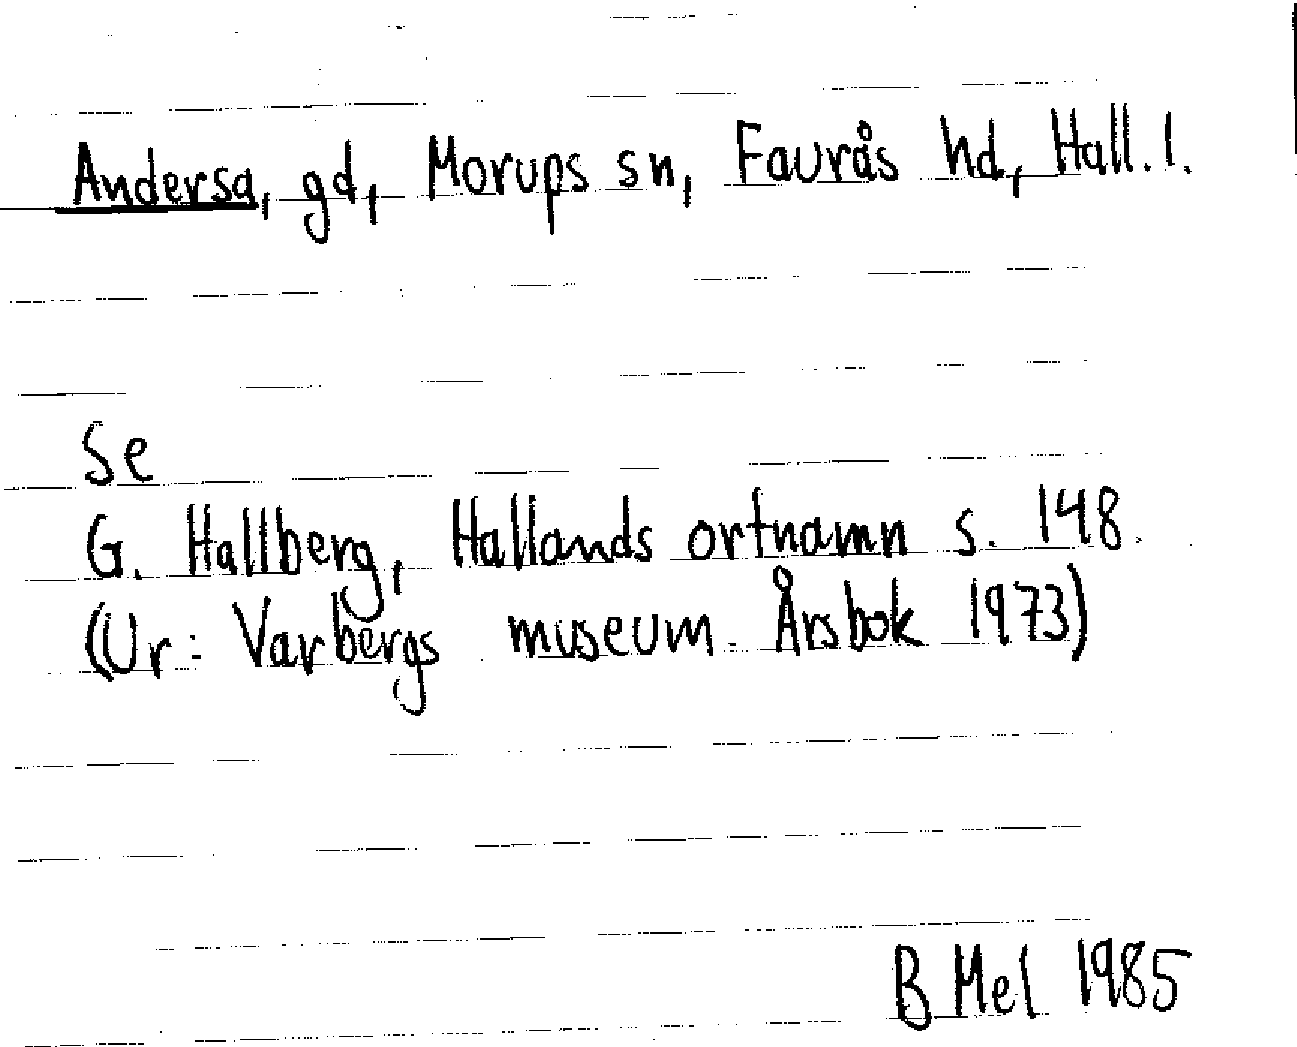 Andersa, gd, Morups sn, Faurås hd, Hall. l.
Se
G. Hallberg, Hallands ortnamn s. 148.
(Ur: Varbergs museum. Årsbok 1973)
B Mel 1985